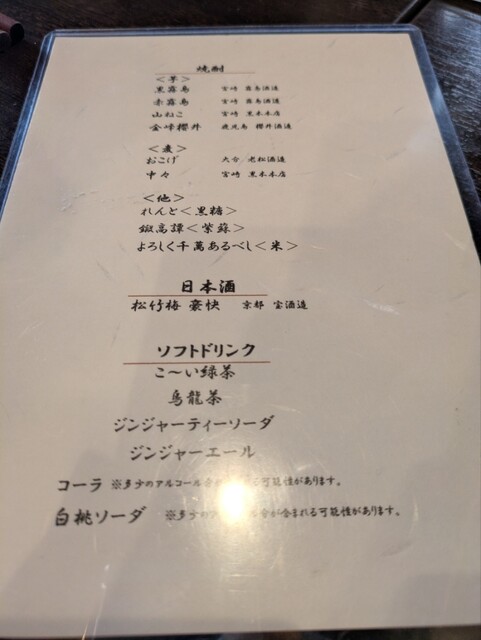 焼酎
＜芋＞
黒霧島 宮崎 霧島酒造
赤霧島 宮崎 霧島酒造
山ねこ 宮崎 黒木本店
金峰櫻井 鹿児島 櫻井酒造
＜麦＞
おこげ 大分 老松酒造
中々 宮崎 黒木本店
＜他＞
れんと＜黒糖＞
鍛高譚＜紫蘇＞
よろしく千萬あるべし＜米＞
日本酒
松竹梅 豪快 京都 宝酒造
ソフトドリンク
こ〜い緑茶
烏龍茶
ジンジャーティーソーダ
ジンジャーエール
コーラ ※多少のアルコール分が る可能性があります。
白桃ソーダ ※多少のア ール分が含まれる可能性があります。